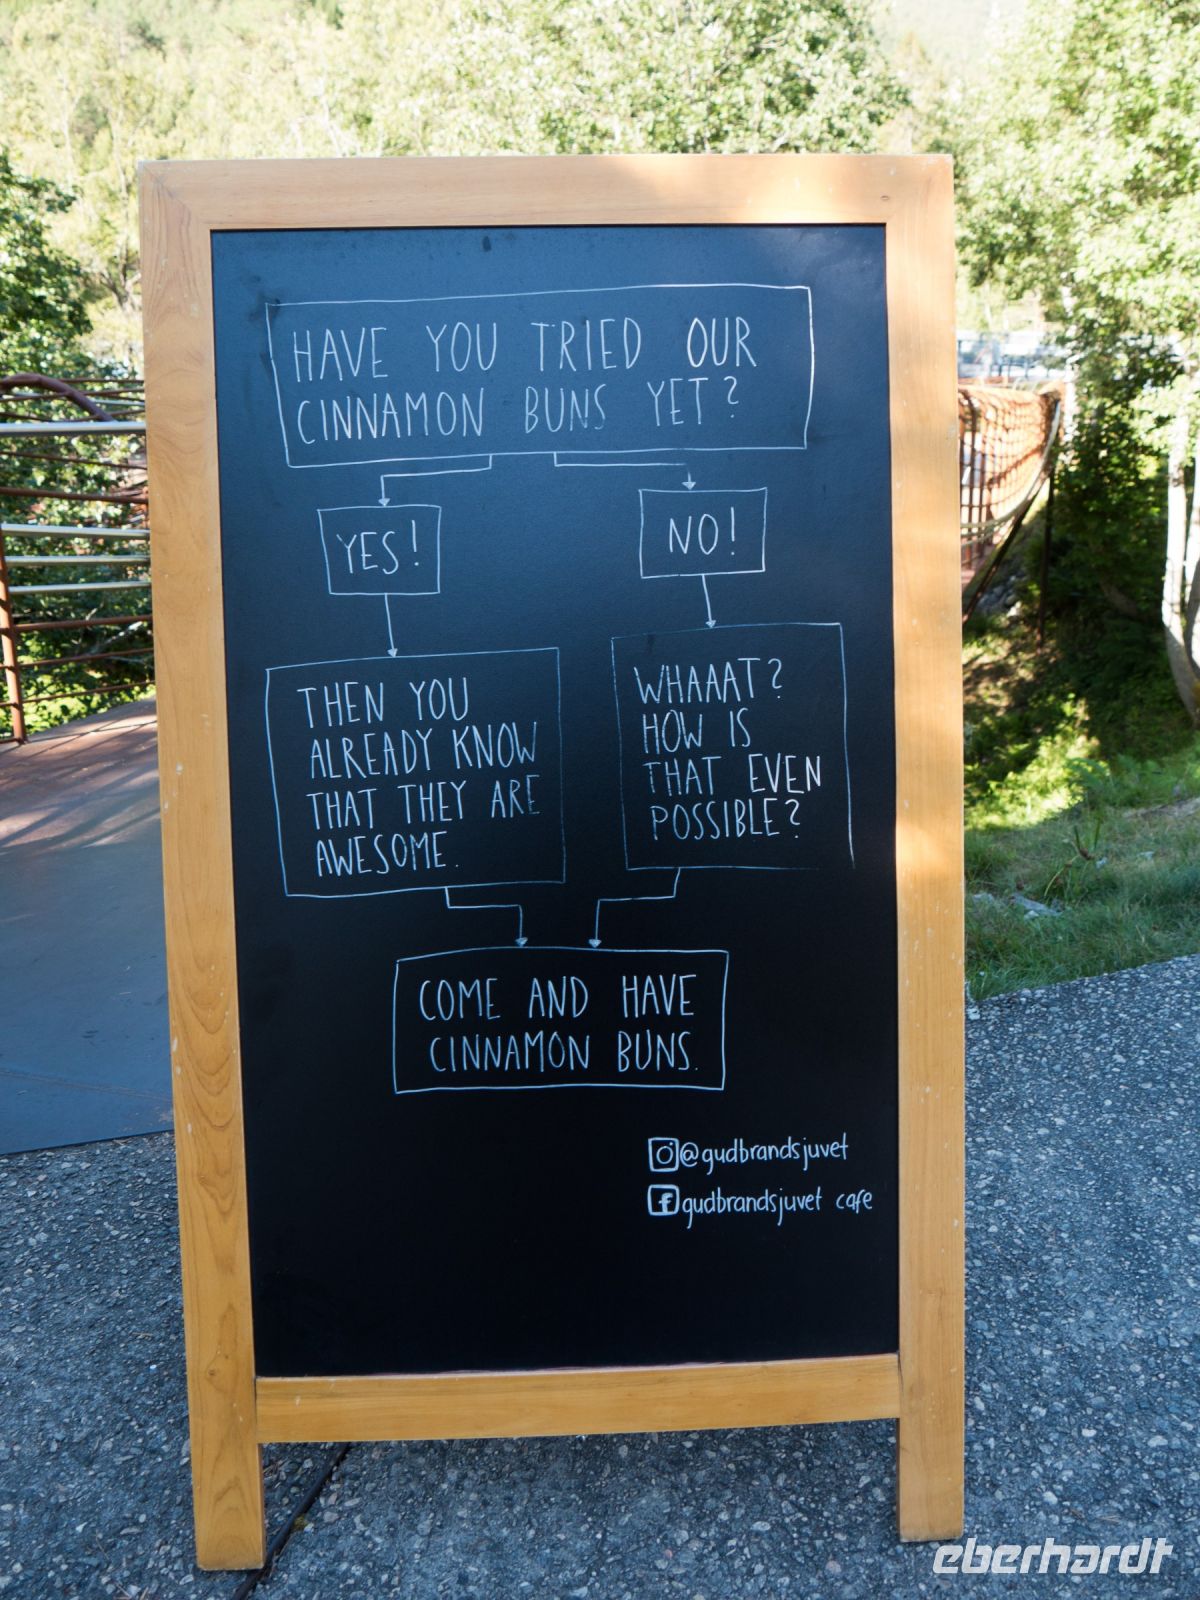 HAVE YOU TRIED OUR
CINNAMON BUNS YET?
YES!
NO!
THEN YOU
ALREADY KNOW
THAT THEY ARE
AWESOME.
WHAAAT?
HOW IS
THAT EVEN
POSSIBLE?
COME AND HAVE
CINNAMON BUNS.
@gudbrandsjuvet
f gudbrandsjuvet cafe
eberhardt